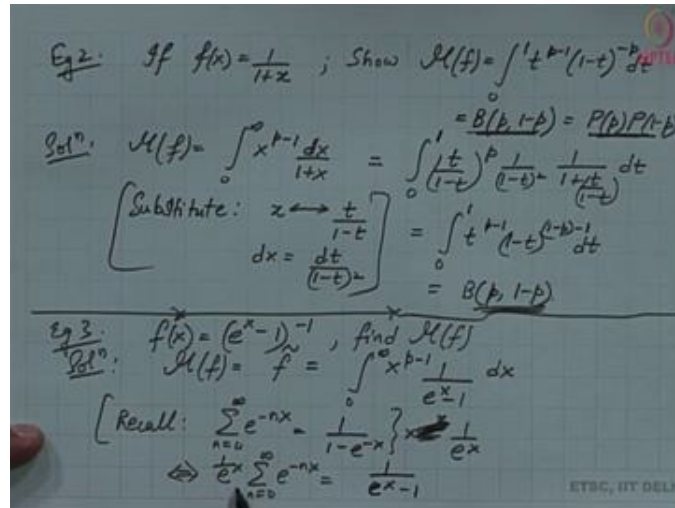 Eg 2. If f(x) = 1/(1+x) ; Show M(f) = ∫₀¹ t^(p-1) (1-t)^(-p) dt
= B(p, 1-p) = Γ(p)Γ(1-p)
Solⁿ. M(f) = ∫₀^∞ x^(p-1) dx/(1+x) = ∫₀¹ (t/(1-t))^p 1/(1-t)² 1/(1+t/(1-t)) dt
[Substitute: x ↔ t/(1-t)
dx = dt/(1-t)²] = ∫₀¹ t^(p-1) (1-t)^((1-p)-1) dt
= B(p, 1-p)
Eg 3. f(x) = (e^x - 1)^-1, find M(f)
Solⁿ: M(f) = f̃ = ∫₀^∞ x^(p-1) 1/(e^x - 1) dx
[Recall: ∑_{n=0}^∞ e^(-nx) = 1/(1-e^(-x)) } × 1/e^x
⇔ 1/e^x ∑_{n=0}^∞ e^(-nx) = 1/(e^x - 1)
ETSC, IIT DELHI